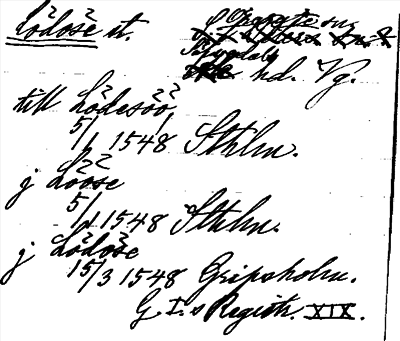 Lödöse st.
Sävedals hd. Vg.
till Lödesöö
5/1 1548 Sthlm.
j Lööse
5/1 1548 Sthlm.
j Lödöse
15/3 1548 Gripsholm.
G. I:s Registr. XIX.